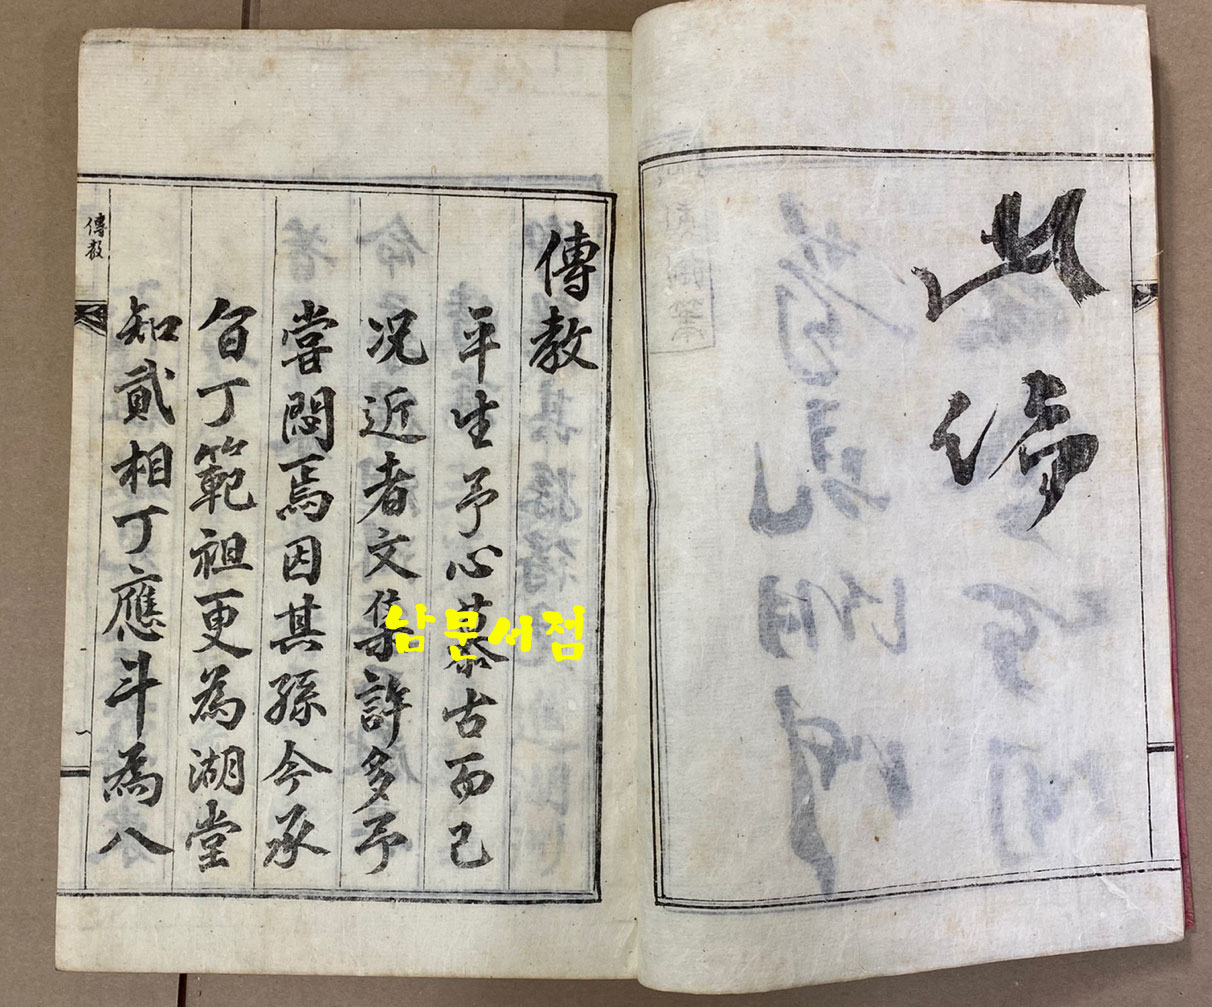 此
傳教
平生予心慕古而已
况近者文集許多予
嘗悶焉因其孫今承
旨丁範祖更為湖堂
知貳相丁應斗為八
傳教
남문서점